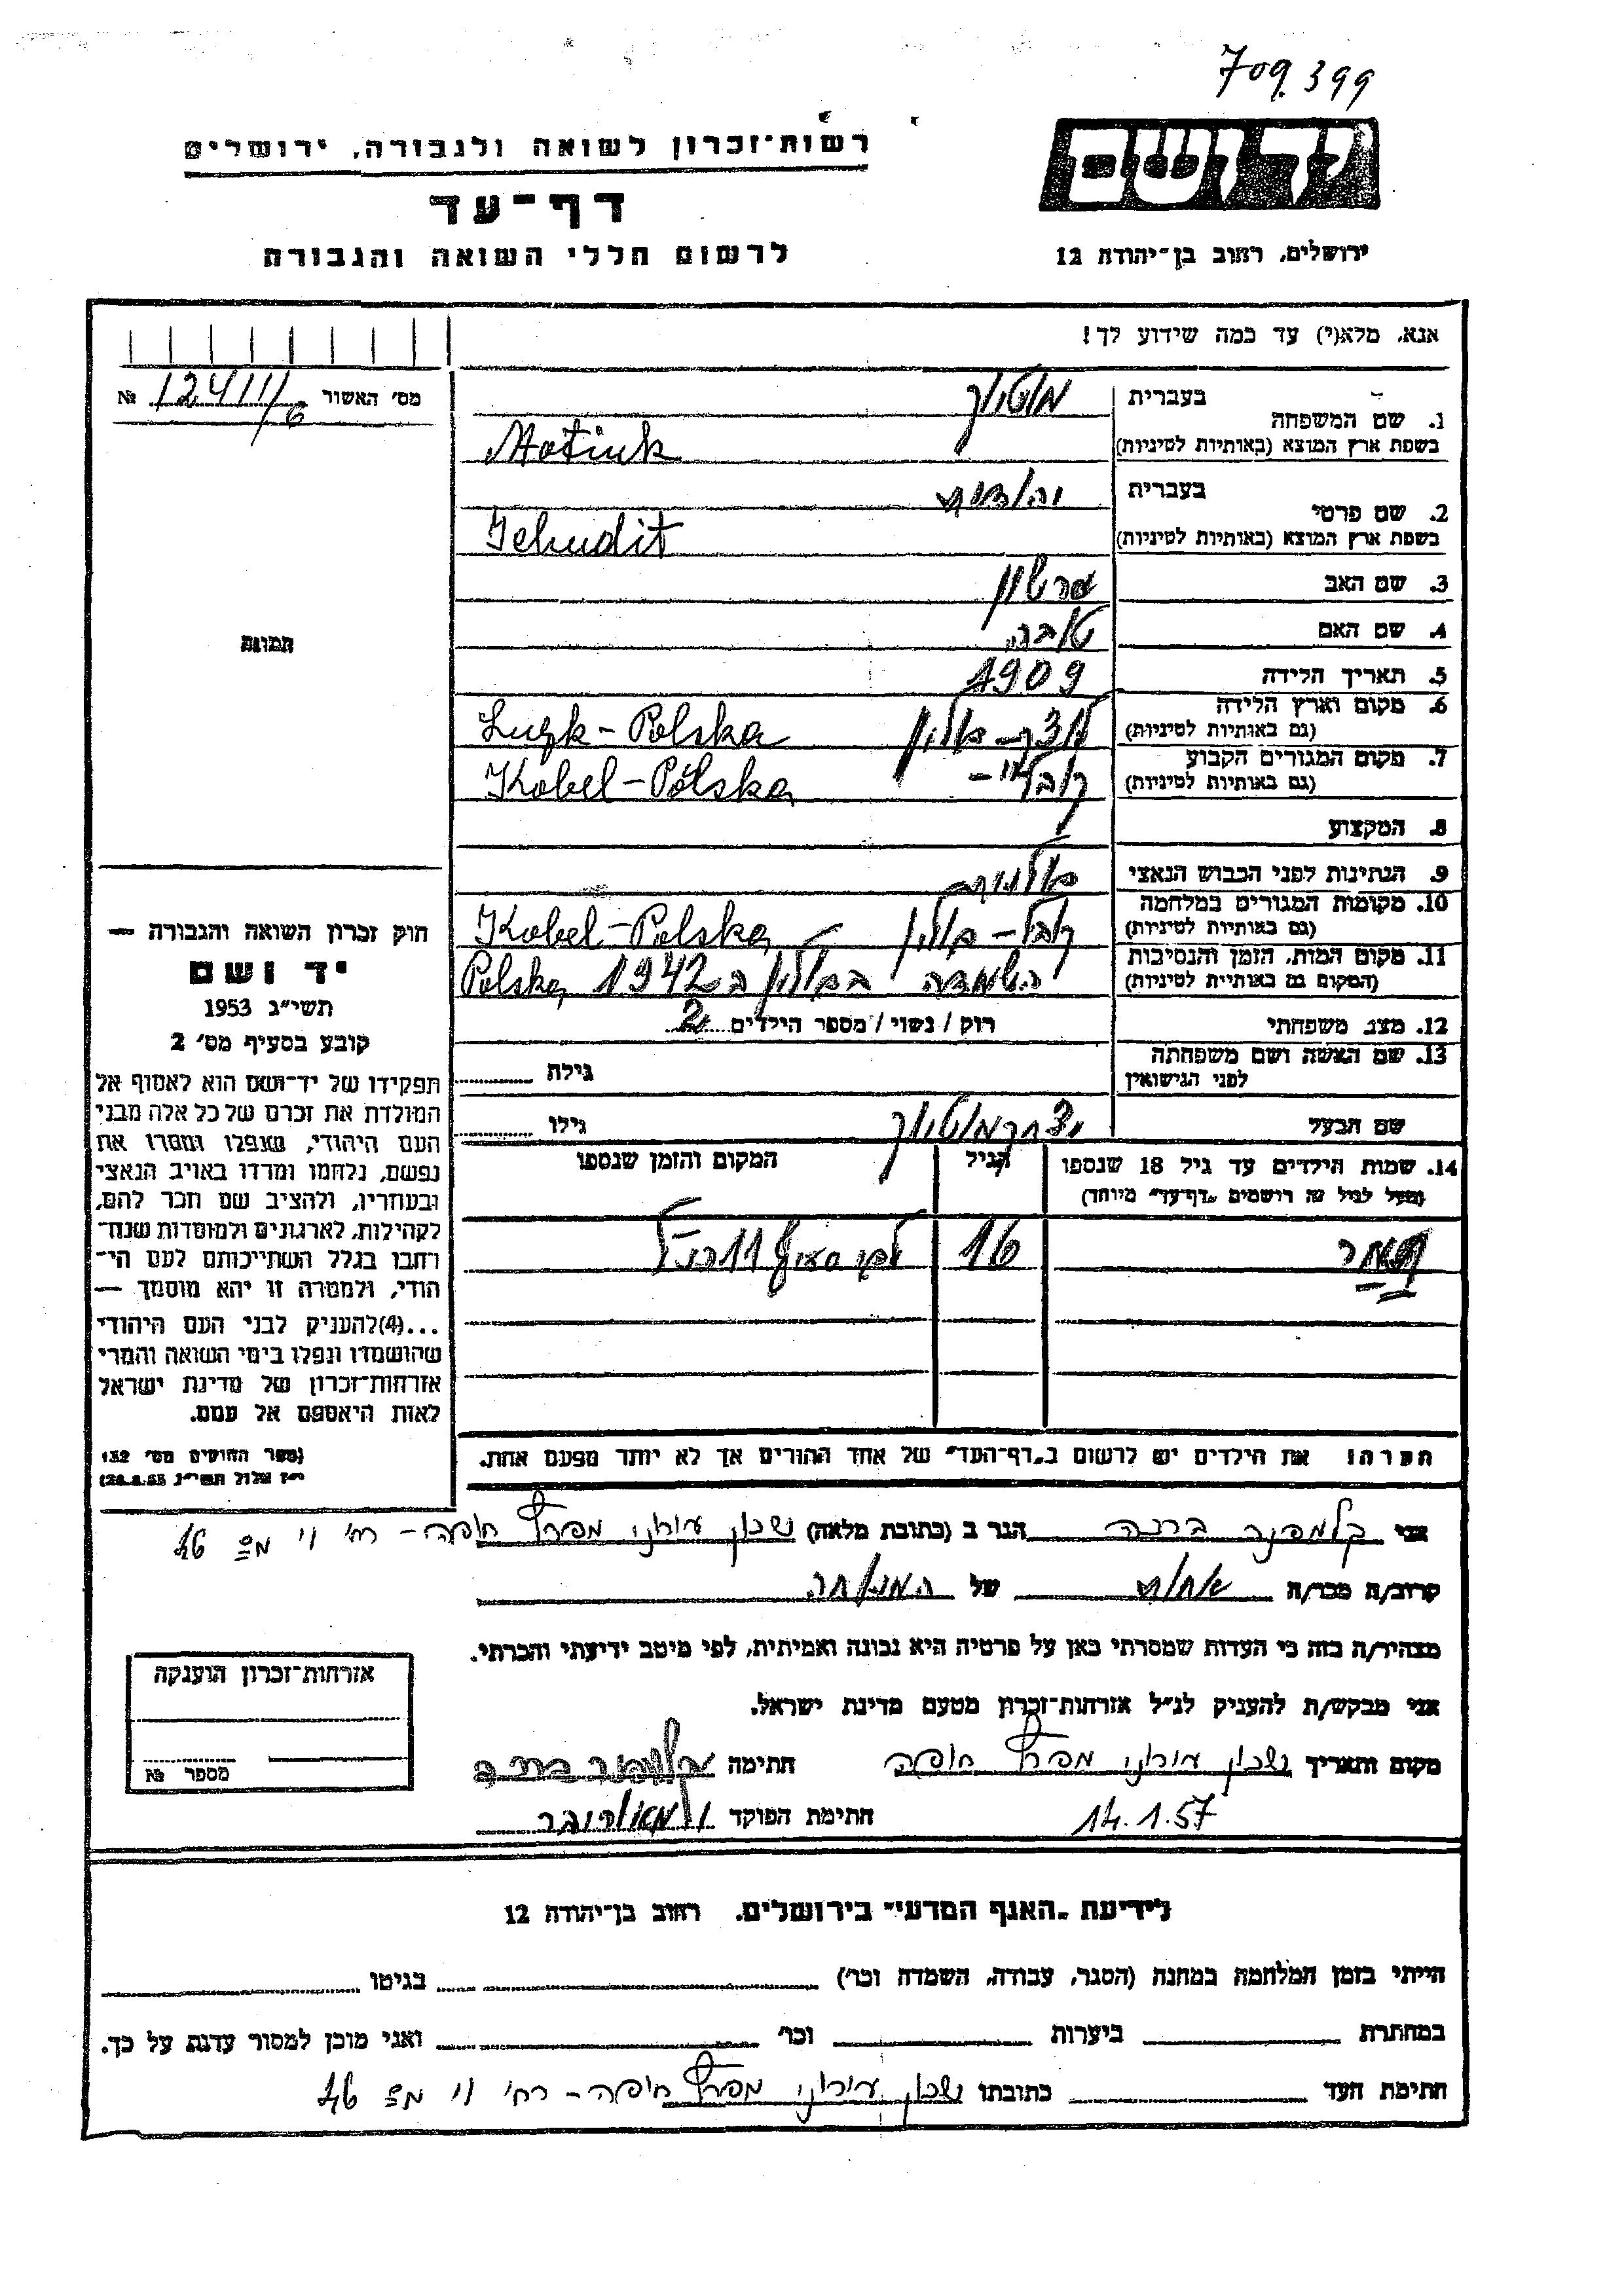 709.399
יד ושם
רשות־זכרון לשואה ולגבורה, ירושלים
דף־עד
לרשום חללי השואה והגבורה
ירושלים, רחוב בן־יהודה 12
אנא, מלא(י) עד כמה שידוע לך!
מס׳ האשור 12411/6 №
1. שם המשפחה
בעברית מוטיוק
בשפת ארץ המוצא (באותיות לטיניות) Motiuk
2. שם פרטי
בעברית יהודית
בשפת ארץ המוצא (באותיות לטיניות) Jehudit
3. שם האב גרשון
4. שם האם טובה
5. תאריך הלידה 1909
6. מקום וארץ הלידה לוצק – פולין Luzk – Polska
(גם באותיות לטיניות)
7. מקום המגורים הקבוע קובל – Kobel – Polska
(גם באותיות לטיניות)
8. המקצוע
9. הנתינות לפני הכבוש הנאצי פולנית
10. מקומות המגורים במלחמה קובל – פולין Kobel – Polska
(גם באותיות לטיניות)
11. מקום המות, הזמן והנסיבות הושמדה בפולין ב 1942 Polska
(המקום גם באותיות לטיניות)
12. מצב משפחתי רוק / נשוי / מספר הילדים 2
13. שם האשה ושם משפחתה לפני הנישואין גילה
שם הבעל יצחק מוטיוק גילו
14. שמות הילדים עד גיל 18 שנספו הגיל המקום והזמן שנספו
(מעל לגיל זה רושמים „דף־עד” מיוחד)
16 לפי סעיף 11 הנ״ל
הערה: את הילדים יש לרשום ב„דף־העד” של אחד ההורים אך לא יותר מפעם אחת.
תמונה
חוק זכרון השואה והגבורה —
יד ושם
תשי״ג 1953
קובע בסעיף מס׳ 2
תפקידו של יד־ושם הוא לאסוף אל
המולדת את זכרם של כל אלה מבני
העם היהודי, שנפלו ומסרו את
נפשם, נלחמו ומרדו באויב הנאצי
ובעוזריו, ולהציב שם וזכר להם,
לקהילות, לארגונים ולמוסדות שנח־
רבו בגלל השתייכותם לעם הי־
הודי, ולמטרה זו יהא מוסמך —
...(4)להעניק לבני העם היהודי
שהושמדו ונפלו בימי השואה והמרי
אזרחות־זכרון של מדינת ישראל
לאות היאספם אל עמם.
(ספר החוקים מס׳ 132
י״ז אלול תשי״ג 28.8.53)
אני קלמפנר ברנה הגר ב (כתובת מלאה) שכון עירוני מפרץ חיפה – רח׳ וי מס 46
קרוב/ה מכר/ה אחות של המנוחה
מצהיר/ה בזה כי העדות שמסרתי כאן על פרטיה היא נכונה ואמיתית, לפי מיטב ידיעתי והכרתי.
אני מבקש/ת להעניק לנ״ל אזרחות־זכרון מטעם מדינת ישראל.
מקום ותאריך שכון עירוני מפרץ חיפה חתימה קלמפנר ברנה
14.1.57 חתימת הפוקד
אזרחות־זכרון הוענקה
מספר №
לידיעת „האגף המדעי” בירושלים. רחוב בן־יהודה 12
הייתי בזמן המלחמה במחנה (הסגר, עבודה, השמדה וכו׳) בגיטו
במחתרת ביערות וכו׳ ואני מוכן למסור עדות על כך.
חתימת העד כתובתו שכון עירוני מפרץ חיפה – רח׳ וי מס 46